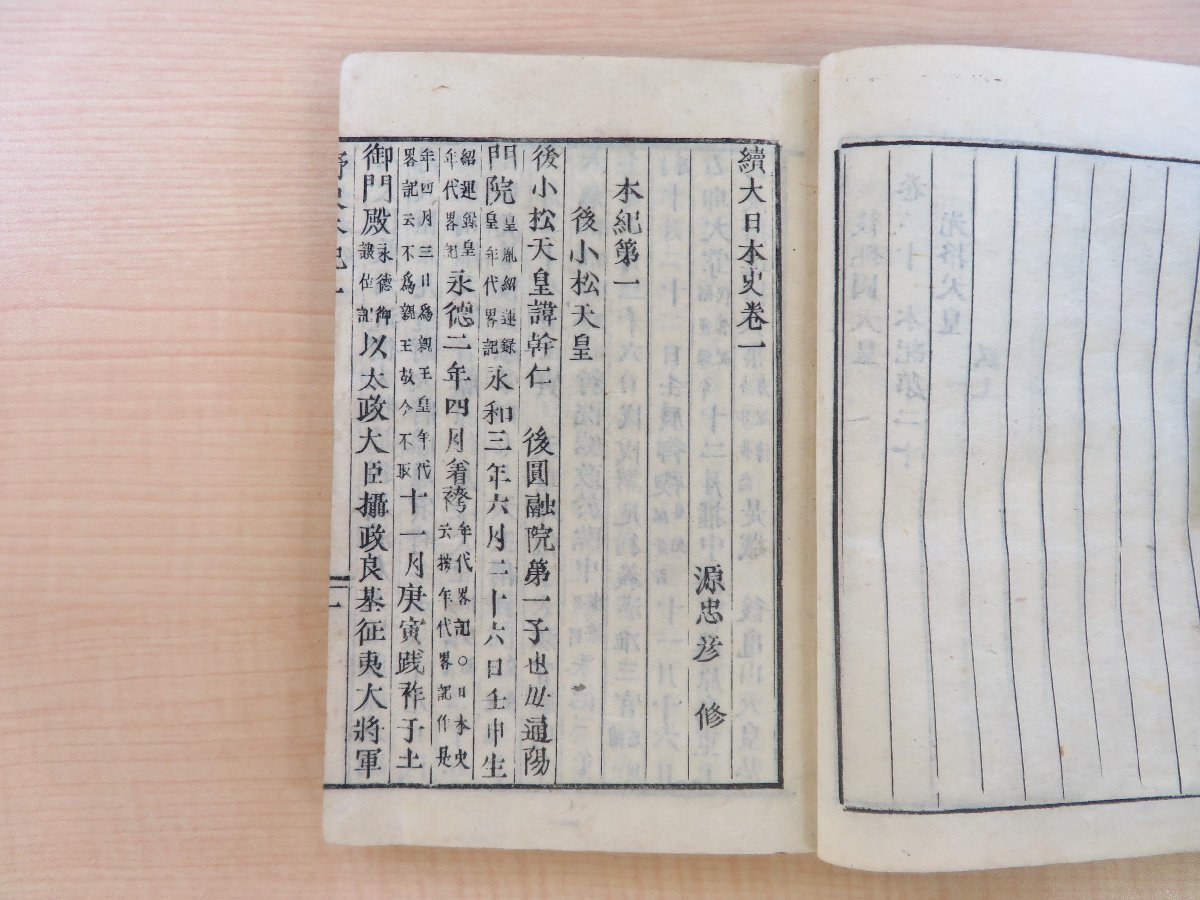 續大日本史卷一
源忠彦 修
本紀第一
後小松天皇
後小松天皇諱幹仁 後圓融院第一子也 母通陽
門院皇胤紹運錄皇年代畧記永和三年六月二十六日壬申生
紹運錄皇年代畧記永德二年四月着袴年代畧記〇日本史云按年代畧記作是
年四月三日爲親王皇年代畧記云不爲親王故今不取十一月庚寅践祚于土
御門殿永德御讓位記以太政大臣攝政良基征夷大將軍